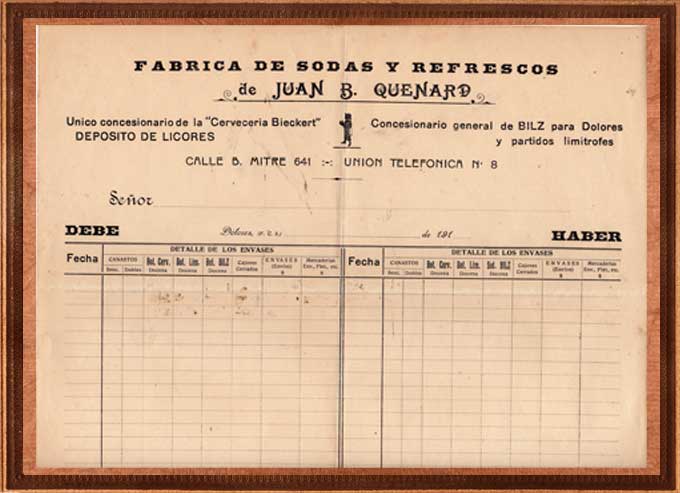 FABRICA DE SODAS Y REFRESCOS
de JUAN B. QUENARD
Unico concesionario de la "Cerveceria Bieckert"
DEPOSITO DE LICORES
Concesionario general de BILZ para Dolores
y partidos limitrofes
CALLE B. MITRE 641 :-: UNION TELEFONICA Nº 8
Señor
Dolores, F. C. S.; de 191
DEBE HABER
Fecha DETALLE DE LOS ENVASES Fecha DETALLE DE LOS ENVASES
CANASTOS Bot. Cerv. Bot. Lim. Bot. BILZ Cajones ENVASES Mercaderias CANASTOS Bot. Cerv. Bot. Lim. Bot. BILZ Cajones ENVASES Mercaderias
Senc. Dobles Docena Docena Docena Cerrados (Envíos) Env., Flet., etc. Senc. Dobles Docena Docena Docena Cerrados (Envíos) Env., Flet., etc.
$ $ $ $